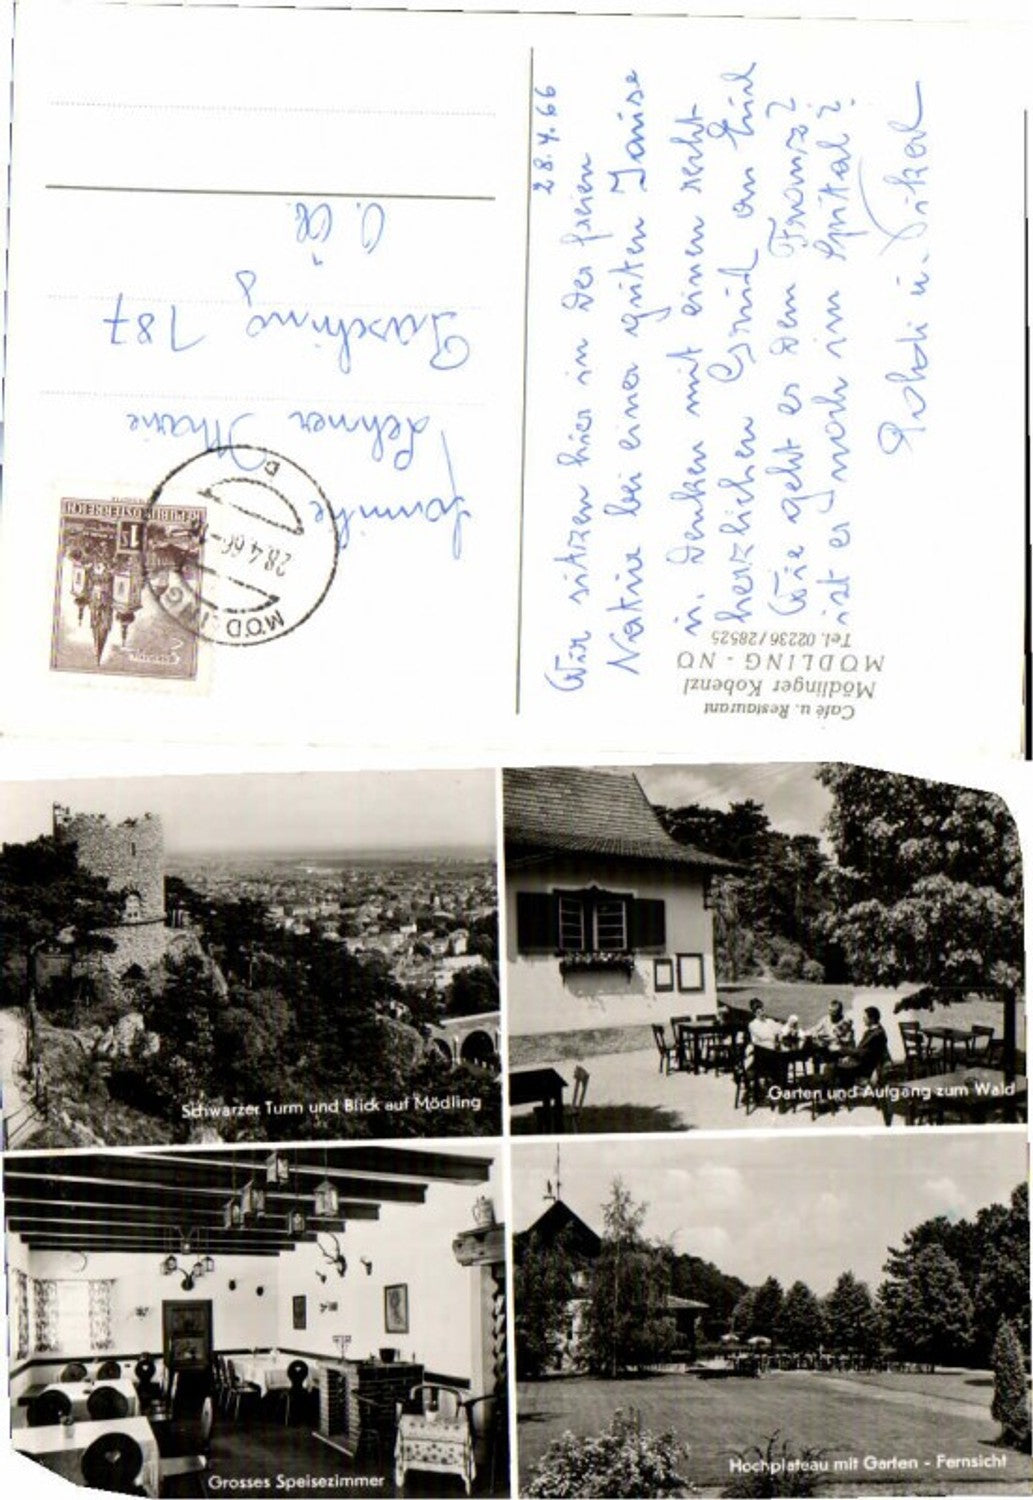 Café u. Restaurant
Mödlinger Kobenzl
MÖDLING - NÖ
Tel. 02236/28525
28.4.66
Wir sitzen hier in der freien
Natur bei einer guten Jause
u. denken mit einem recht
herzlichen Gruß an Euch
Wie geht es dem Franz?
ist er noch im Spital?
u.
REPUBLIK ÖSTERREICH
1S
MÖDLING
28.4.66
Familie
Lehner Marie
187
O.Ö.
Schwarzer Turm und Blick auf Mödling
Garten und Aufgang zum Wald
Grosses Speisezimmer
Hochplateau mit Garten - Fernsicht